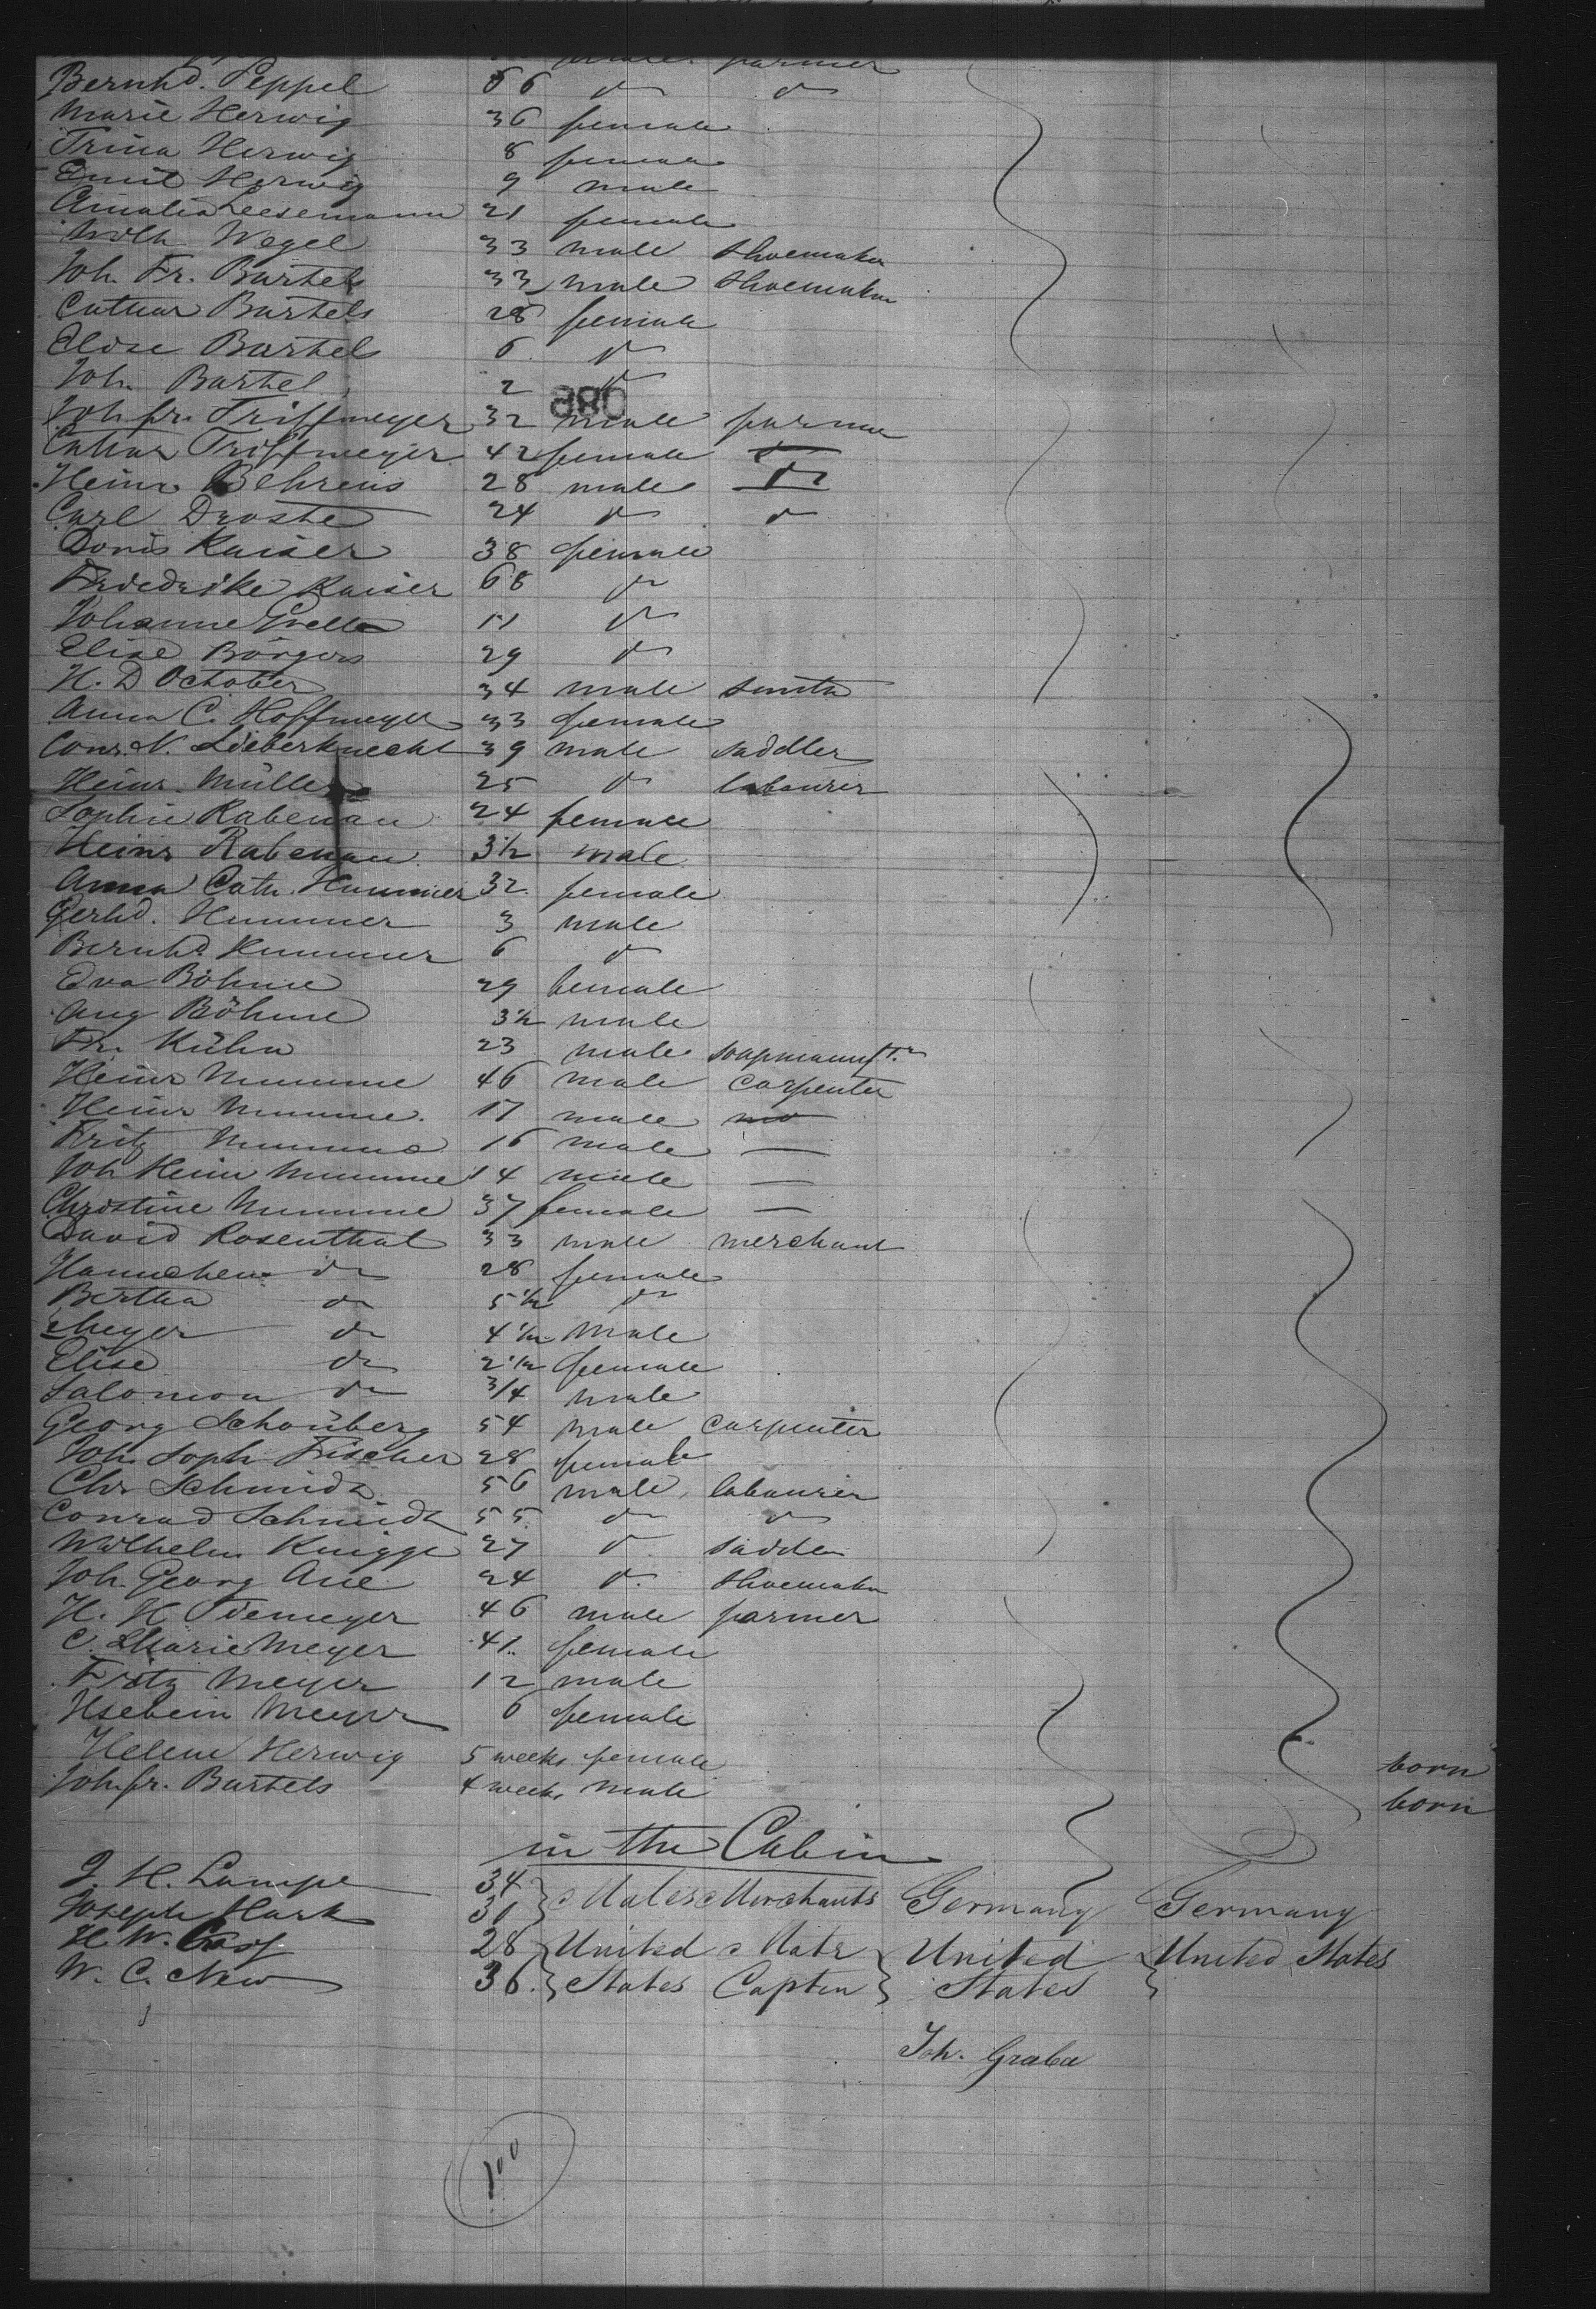 male farmer
Bernhd. Peppel 56 do do
Marie Herwig 36 female
Trina Herwig 8 female
Emil Herwig 9 male
Amalia Leesemann 21 female
Wilh Wegel 33 male shoemaker
Joh. Fr. Bartels 33 male shoemaker
Cathar Bartels 28 female
Elise Bartels 6 do
Joh. Bartel 2 do
Joh fr. Triffmeyer 32 male farmer
Cathar Triffmeyer 42 female
Heinr. Behrens 28 male do
Carl Droste 24 do do
Doris Kaiser 38 female
Friedrike Kaiser 68 do
Johanne 11 do
Elise Börgers 29 do
H. D October 34 male smith
Anna C. Hoffmeyer 33 female
Conr. N. Lieberknecht 39 male saddler
Heinr. Müller 25 do labourer
Sophie Rabenau 24 female
Heinr Rabenau 3½ male
Anna Cath. Hummer 32 female
Gerhd. Hummer 3 male
Bernhd Hummer 6 do
Eva Böhme 29 female
Aug Böhme 3½ male
Fr. Kühn 23 male soapmanuftr
Heinr Mumme 46 male carpenter
Heinr Mumme. 17 male
Fritz Mumme 16 male —
Joh Heinr Mumme 14 male —
Christine Mumme 37 female —
David Rosenthal 33 male merchant
Hannchen do 28 female
Bertha do 5½ do
Meyer do 4½ male
Elise do 2½ female
Salomon do 3/4 male
Georg Schönberg 54 male carpenter
Joh. Soph Fischer 28 female
Chr Schmidt 56 male labourer
Conrad Schmidt 55 do do
Wilhelm Knigge 27 do saddler
Joh. Georg Aue 24 do shoemaker
H. H Tiemeyer 46 male farmer
C. Marie Meyer 41 female
Fritz Meyer 12 male
Ilsebein Meyer 6 female
Helene Herwig 5 weeks female born
Joh. fr. Bartels 4 weeks male born
in the Cabin
J. H. Lampe 34 Males Merchants Germany Germany
Joseph Hark 31
H. W. 28 United Mate United United States
W. C. New 36. States Captn States
Joh. Grabe
100